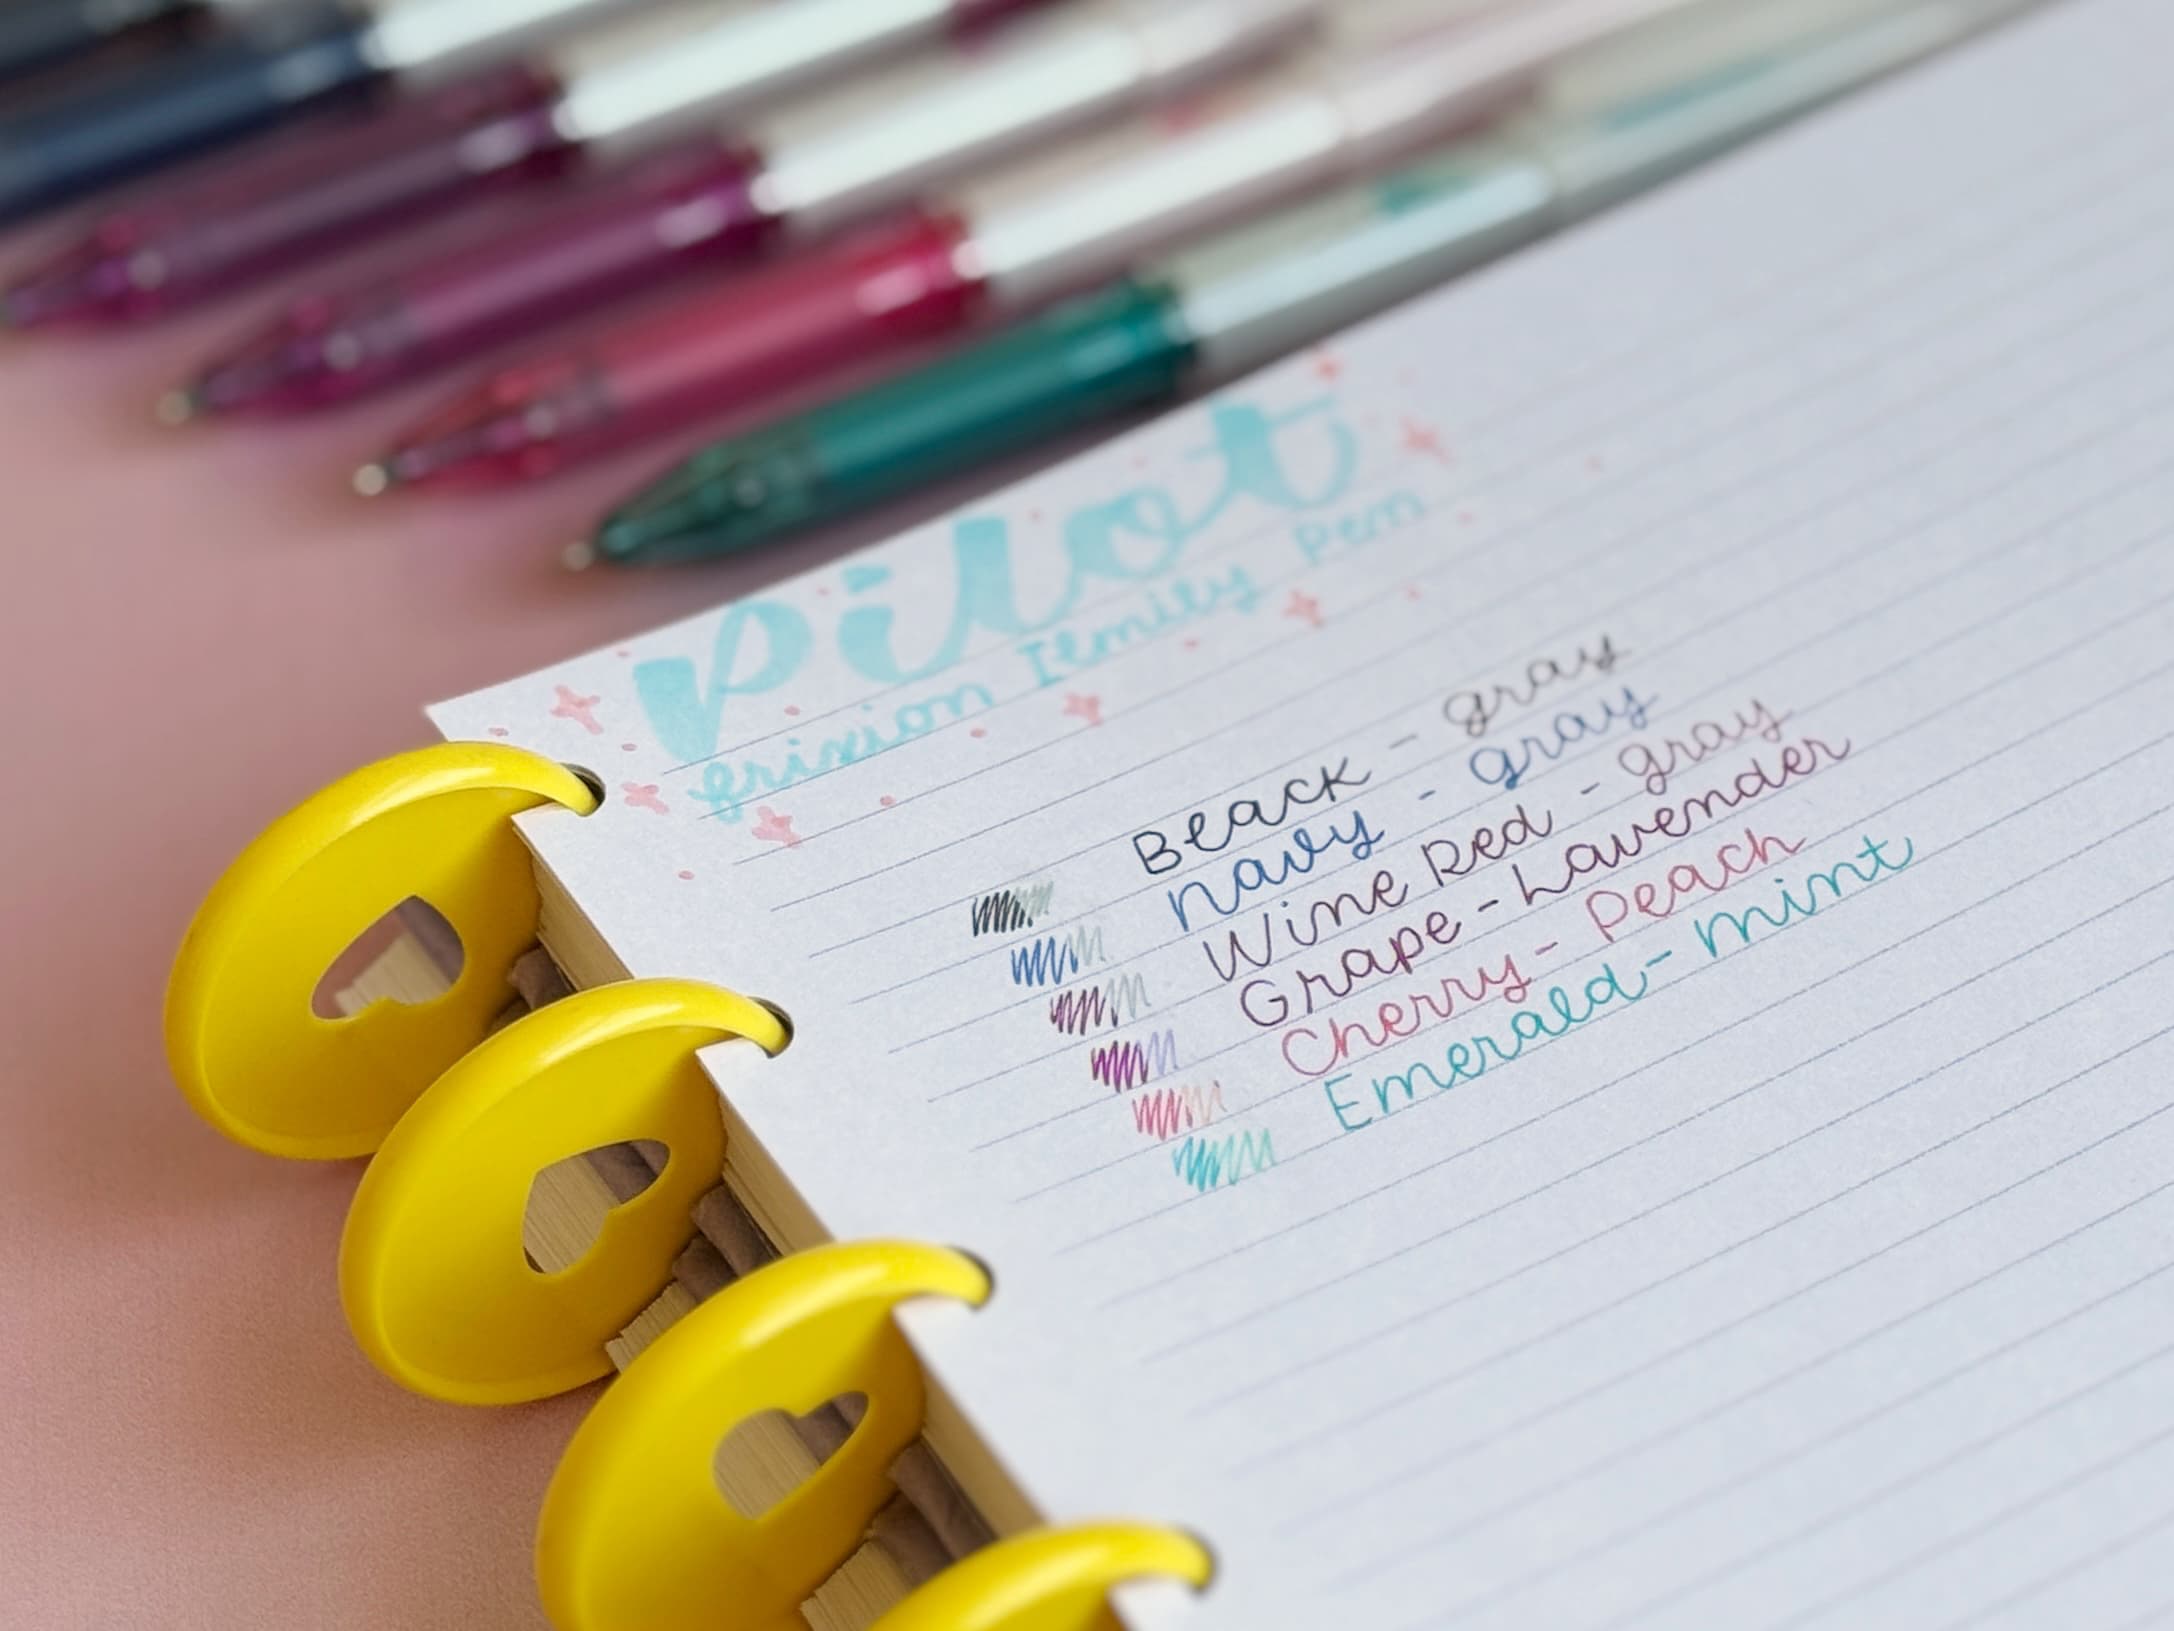 Pilot
frixion Ilmily Pen
Black - gray
navy - gray
Wine Red - gray
Grape - Lavender
Cherry - Peach
Emerald - mint